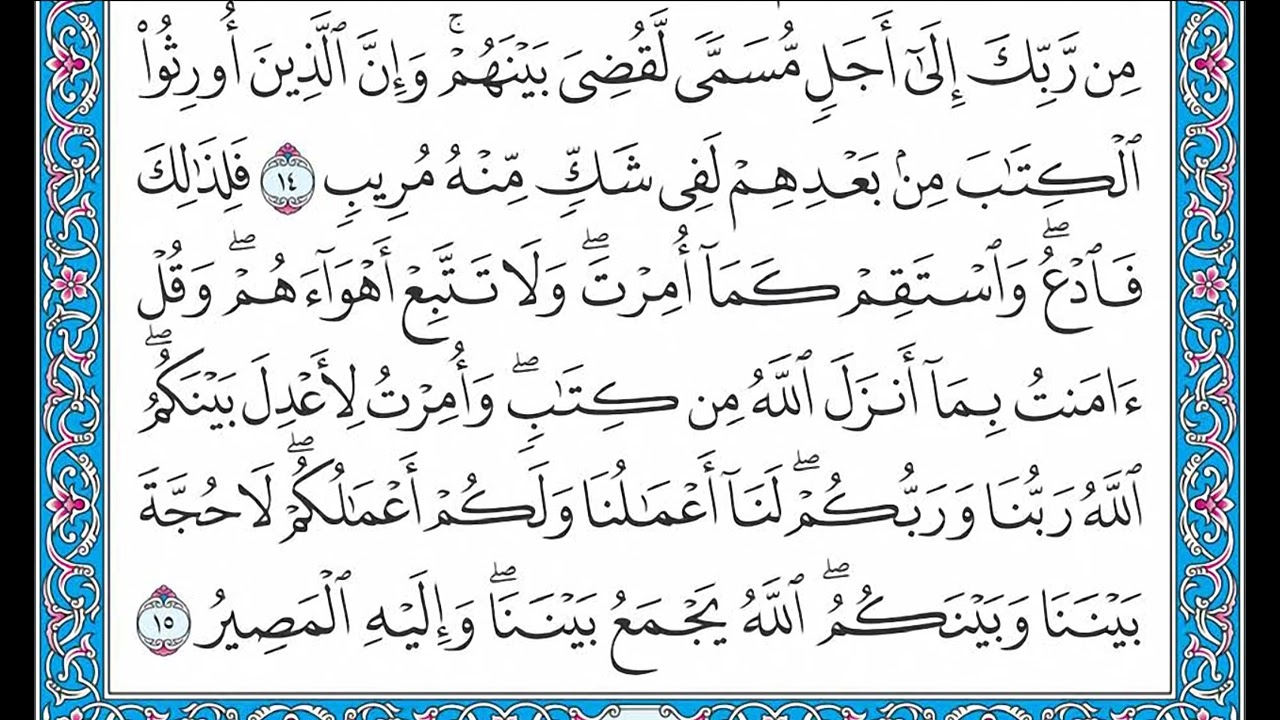 مِن رَّبِّكَ إِلَىٰٓ أَجَلٍ مُّسَمًّى لَّقُضِىَ بَيْنَهُمْ ۚ وَإِنَّ ٱلَّذِينَ أُورِثُوا۟
ٱلْكِتَـٰبَ مِنۢ بَعْدِهِمْ لَفِى شَكٍّ مِّنْهُ مُرِيبٍ ١٤ فَلِذَٰلِكَ
فَٱدْعُ ۖ وَٱسْتَقِمْ كَمَآ أُمِرْتَ ۖ وَلَا تَتَّبِعْ أَهْوَآءَهُمْ ۖ وَقُلْ
ءَامَنتُ بِمَآ أَنزَلَ ٱللَّهُ مِن كِتَـٰبٍ ۖ وَأُمِرْتُ لِأَعْدِلَ بَيْنَكُمُ ۖ
ٱللَّهُ رَبُّنَا وَرَبُّكُمْ ۖ لَنَآ أَعْمَـٰلُنَا وَلَكُمْ أَعْمَـٰلُكُمْ ۖ لَا حُجَّةَ
بَيْنَنَا وَبَيْنَكُمُ ۖ ٱللَّهُ يَجْمَعُ بَيْنَنَا ۖ وَإِلَيْهِ ٱلْمَصِيرُ ١٥